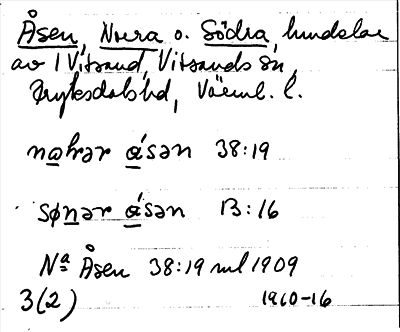 Åsen, Norra o. Södra, hmdelar
av 1 Vitsand, Vitsands sn,
Fryksdals hd, Värml. l.
nahrər åsən 38:19
sønər åsən 13:16
Nª Åsen 38:19 ml 1909
3(2) 1910-16